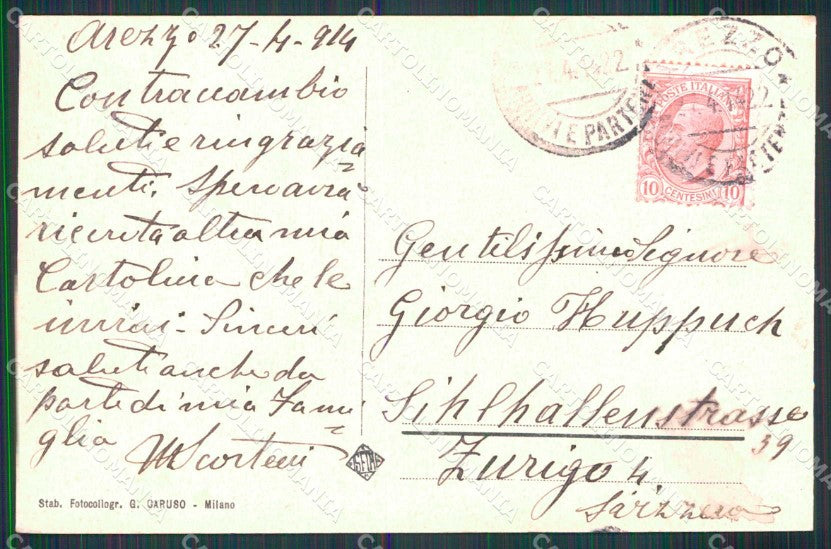 Arezzo 27-4-914
Contraccambio
saluti e ringrazia
menti. Spero avrà
ricevuta altra mia
Cartolina che le
inviai - Sinceri
saluti anche da
parte di mia Fami
glia
Stab. Fotocollogr. G. CARUSO - Milano
AREZZO
ARRIVI E PARTENZE
POSTE ITALIANE
10 CENTESIMI 10
Gentilissimo Signore
Giorgio Huppuch
Sihlhallenstrasse
39
Zurigo 4.
Svizzera
CARTOLINOMANIA